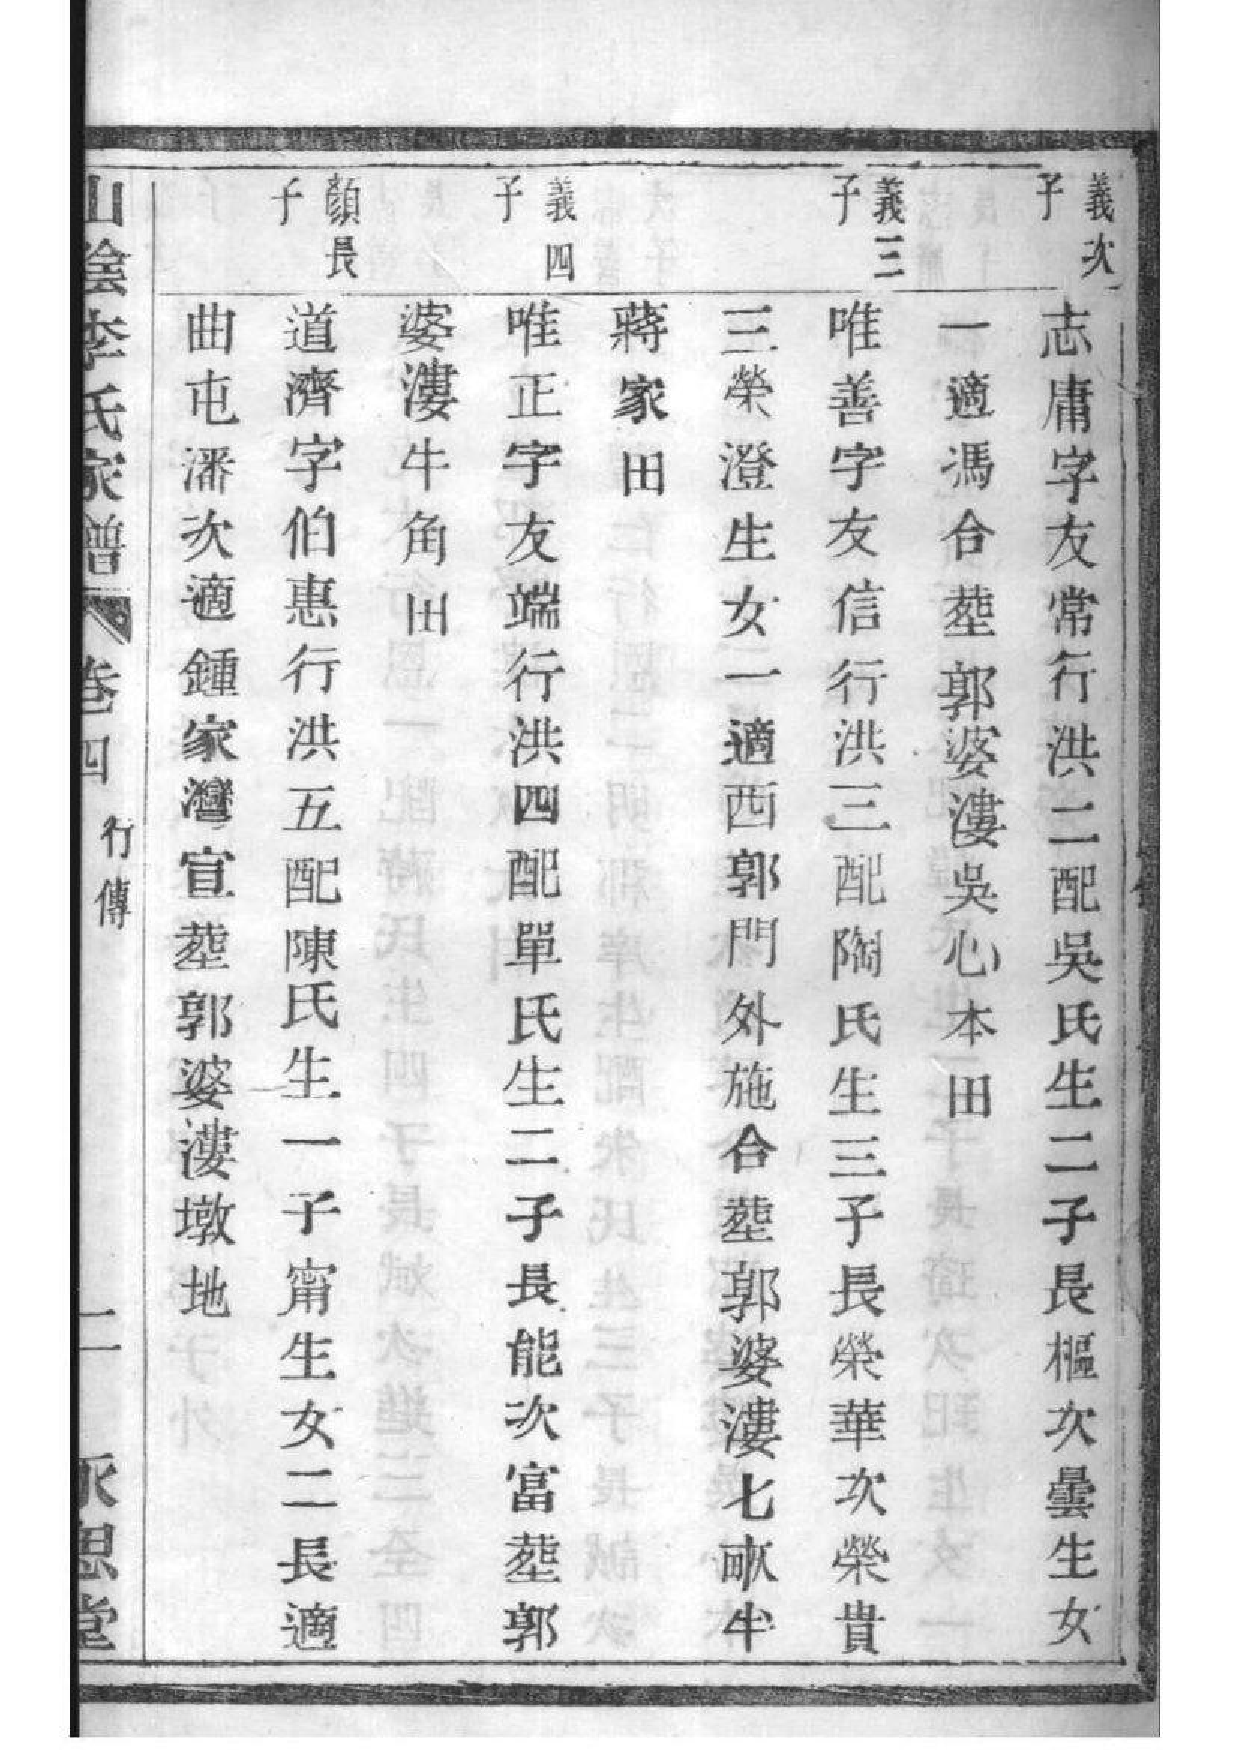 義次子
志庸字友常行洪二配吳氏生二子長樞次曇生女
一適馮合塟郭婆漊吳心本田
義三子
唯善字友信行洪三配陶氏生三子長榮華次榮貴
三榮澄生女一適西郭門外施合塟郭婆漊七畝半
蔣家田
義四子
唯正字友端行洪四配單氏生二子長能次富塟郭
婆漊牛角田
顏長子
道濟字伯惠行洪五配陳氏生一子甯生女二長適
曲屯潘次適鍾家灣宣塟郭婆漊墩地
山陰李氏家譜 卷四 行傳 二 永思堂